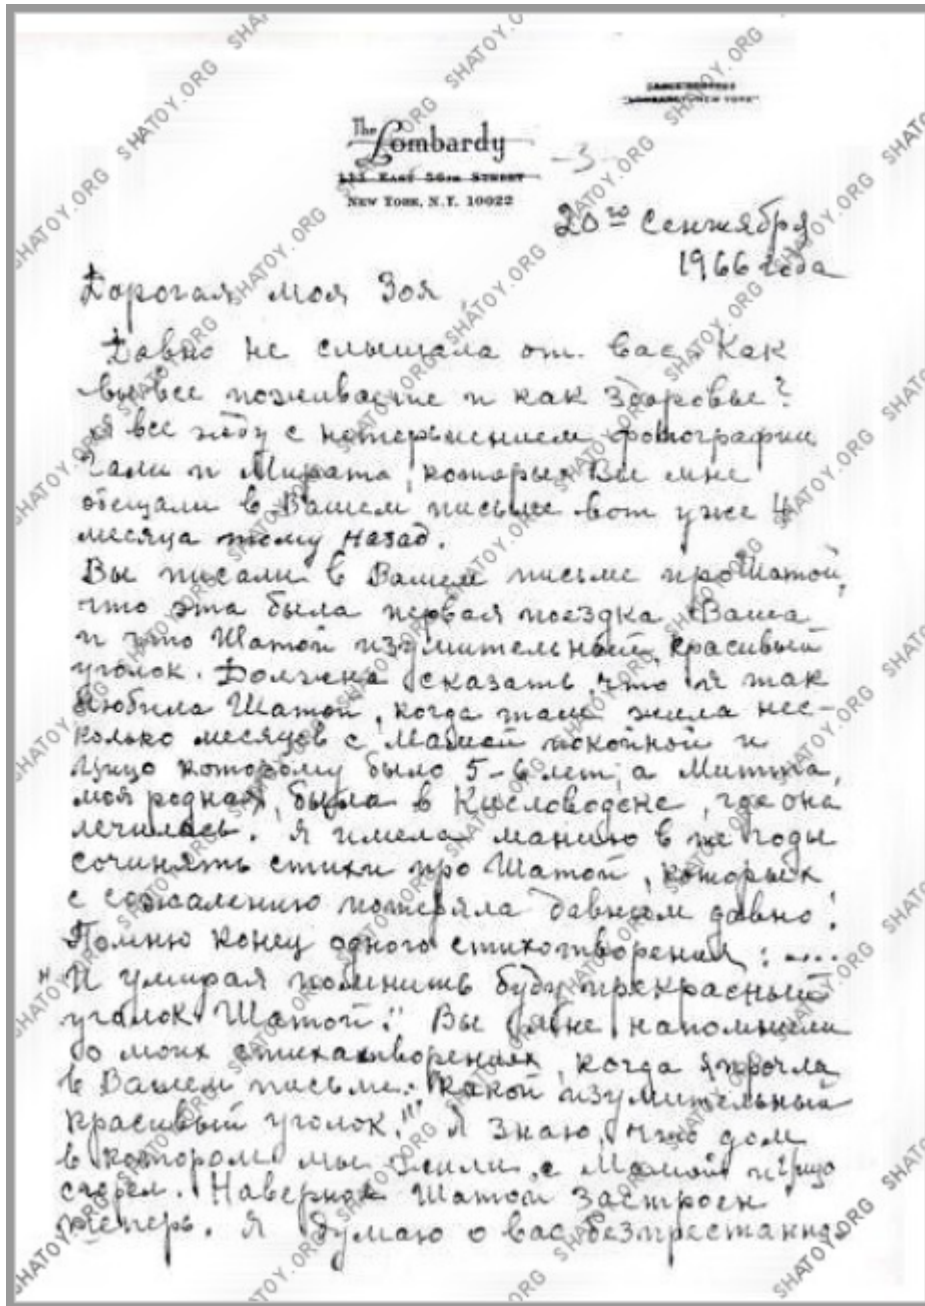 The Lombardy
111 EAST 56TH STREET
NEW YORK, N.Y. 10022
-3-
20го Сентября
1966 года
Дорогая моя Зоя,
Давно не слышала от вас. Как
вы все поживаете и как здоровье?
Я все жду с нетерпением фотографии
Гали и Мирата, которых Вы мне
обещали в Вашем письме вот уже 4
месяца тому назад.
Вы писали в Вашем письме про Шатой,
что эта была первая поездка Ваша
и что Шатой изумительный, красивый
уголок. Должна сказать, что я так
любила Шатой, когда там жила нес-
колько месяцов с Мамой покойной и
которому было 5-6 лет, а
моя родная, была в Кисловодске, где она
лечилась. Я имела манию в те годы
сочинять стихи про Шатой, которых
с сожалению потеряла давным давно!
Помню конец одного стихотворения: ....
"И умирая помнить буду прекрасный
уголок Шатой!" Вы мне напомнили
о моих стихатворениях, когда я прочла
в Вашем письме: "какой изумительный
красивый уголок!" Я знаю, что дом
в котором мы жили с Мамой и
сгорел. Наверняк Шатой застроен
теперь. Я думаю о вас безпрестанно
SHATOY.ORG